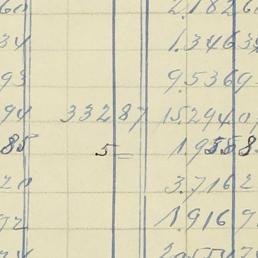 60 2.182 60
34 1.346 39
93 9.536 9
94 332 87 15.294 07
85 5 = 1.958 8
20 3.716 2
92 1.916 9